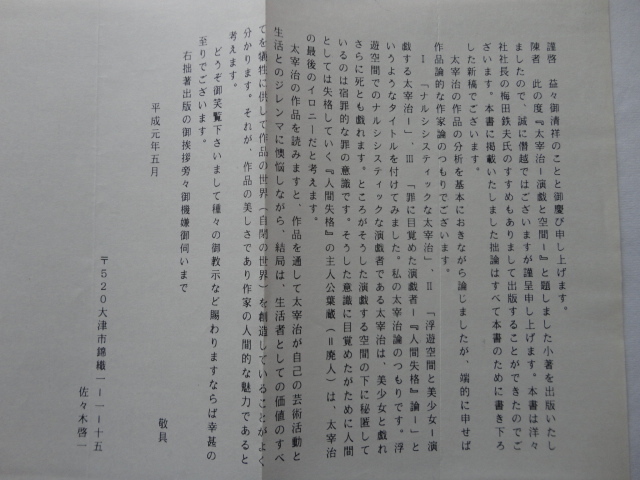 謹啓　益々御清祥のことと御慶び申し上げます。
陳者　此の度『太宰治ー演戯と空間ー』と題しました小著を出版いたし
ましたので、誠に僭越ではございますが謹呈申し上げます。本書は洋々
社社長の梅田鉄夫氏のすすめもありまして出版することができたのでご
ざいます。本書に掲載いたしました拙論はすべて本書のために書き下ろ
した新稿でございます。
太宰治の作品の分析を基本におきながら論じましたが、端的に申せば
作品論的な作家論のつもりでございます。
Ⅰ　「ナルシシスティックな太宰治」、Ⅱ　「浮遊空間と美少女ー演
戯する太宰治ー」、Ⅲ　「罪に目覚めた演戯者ー『人間失格』論ー」と
いうようなタイトルを付けてみました。私の太宰治論のつもりです。浮
遊空間でのナルシシスティックな演戯者である太宰治は、美少女と戯れ
さらに死とも戯れます。ところがそうした演戯する空間の下に秘匿して
いるのは宿罪的な罪の意識です。そうした意識に目覚めたがために人間
としては失格していく『人間失格』の主人公葉蔵（＝廃人）は、太宰治
の最後のイロニーだと考えます。
太宰治の作品を読みますと、作品を通して太宰治が自己の芸術活動と
生活とのジレンマに懊悩しながら、結局は、生活者としての価値のすべ
てを犠牲に供して作品の世界（自閉の世界）を創造していることがよく
分かります。それが、作品の美しさであり作家の人間的な魅力であると
考えます。
どうぞ御笑覧下さいまして種々の御教示など賜わりますならば幸甚の
至りでございます。
右拙著出版の御挨拶旁々御機嫌御伺いまで
敬具
平成元年五月
〒520大津市錦織一ー一ー十五
佐々木啓一